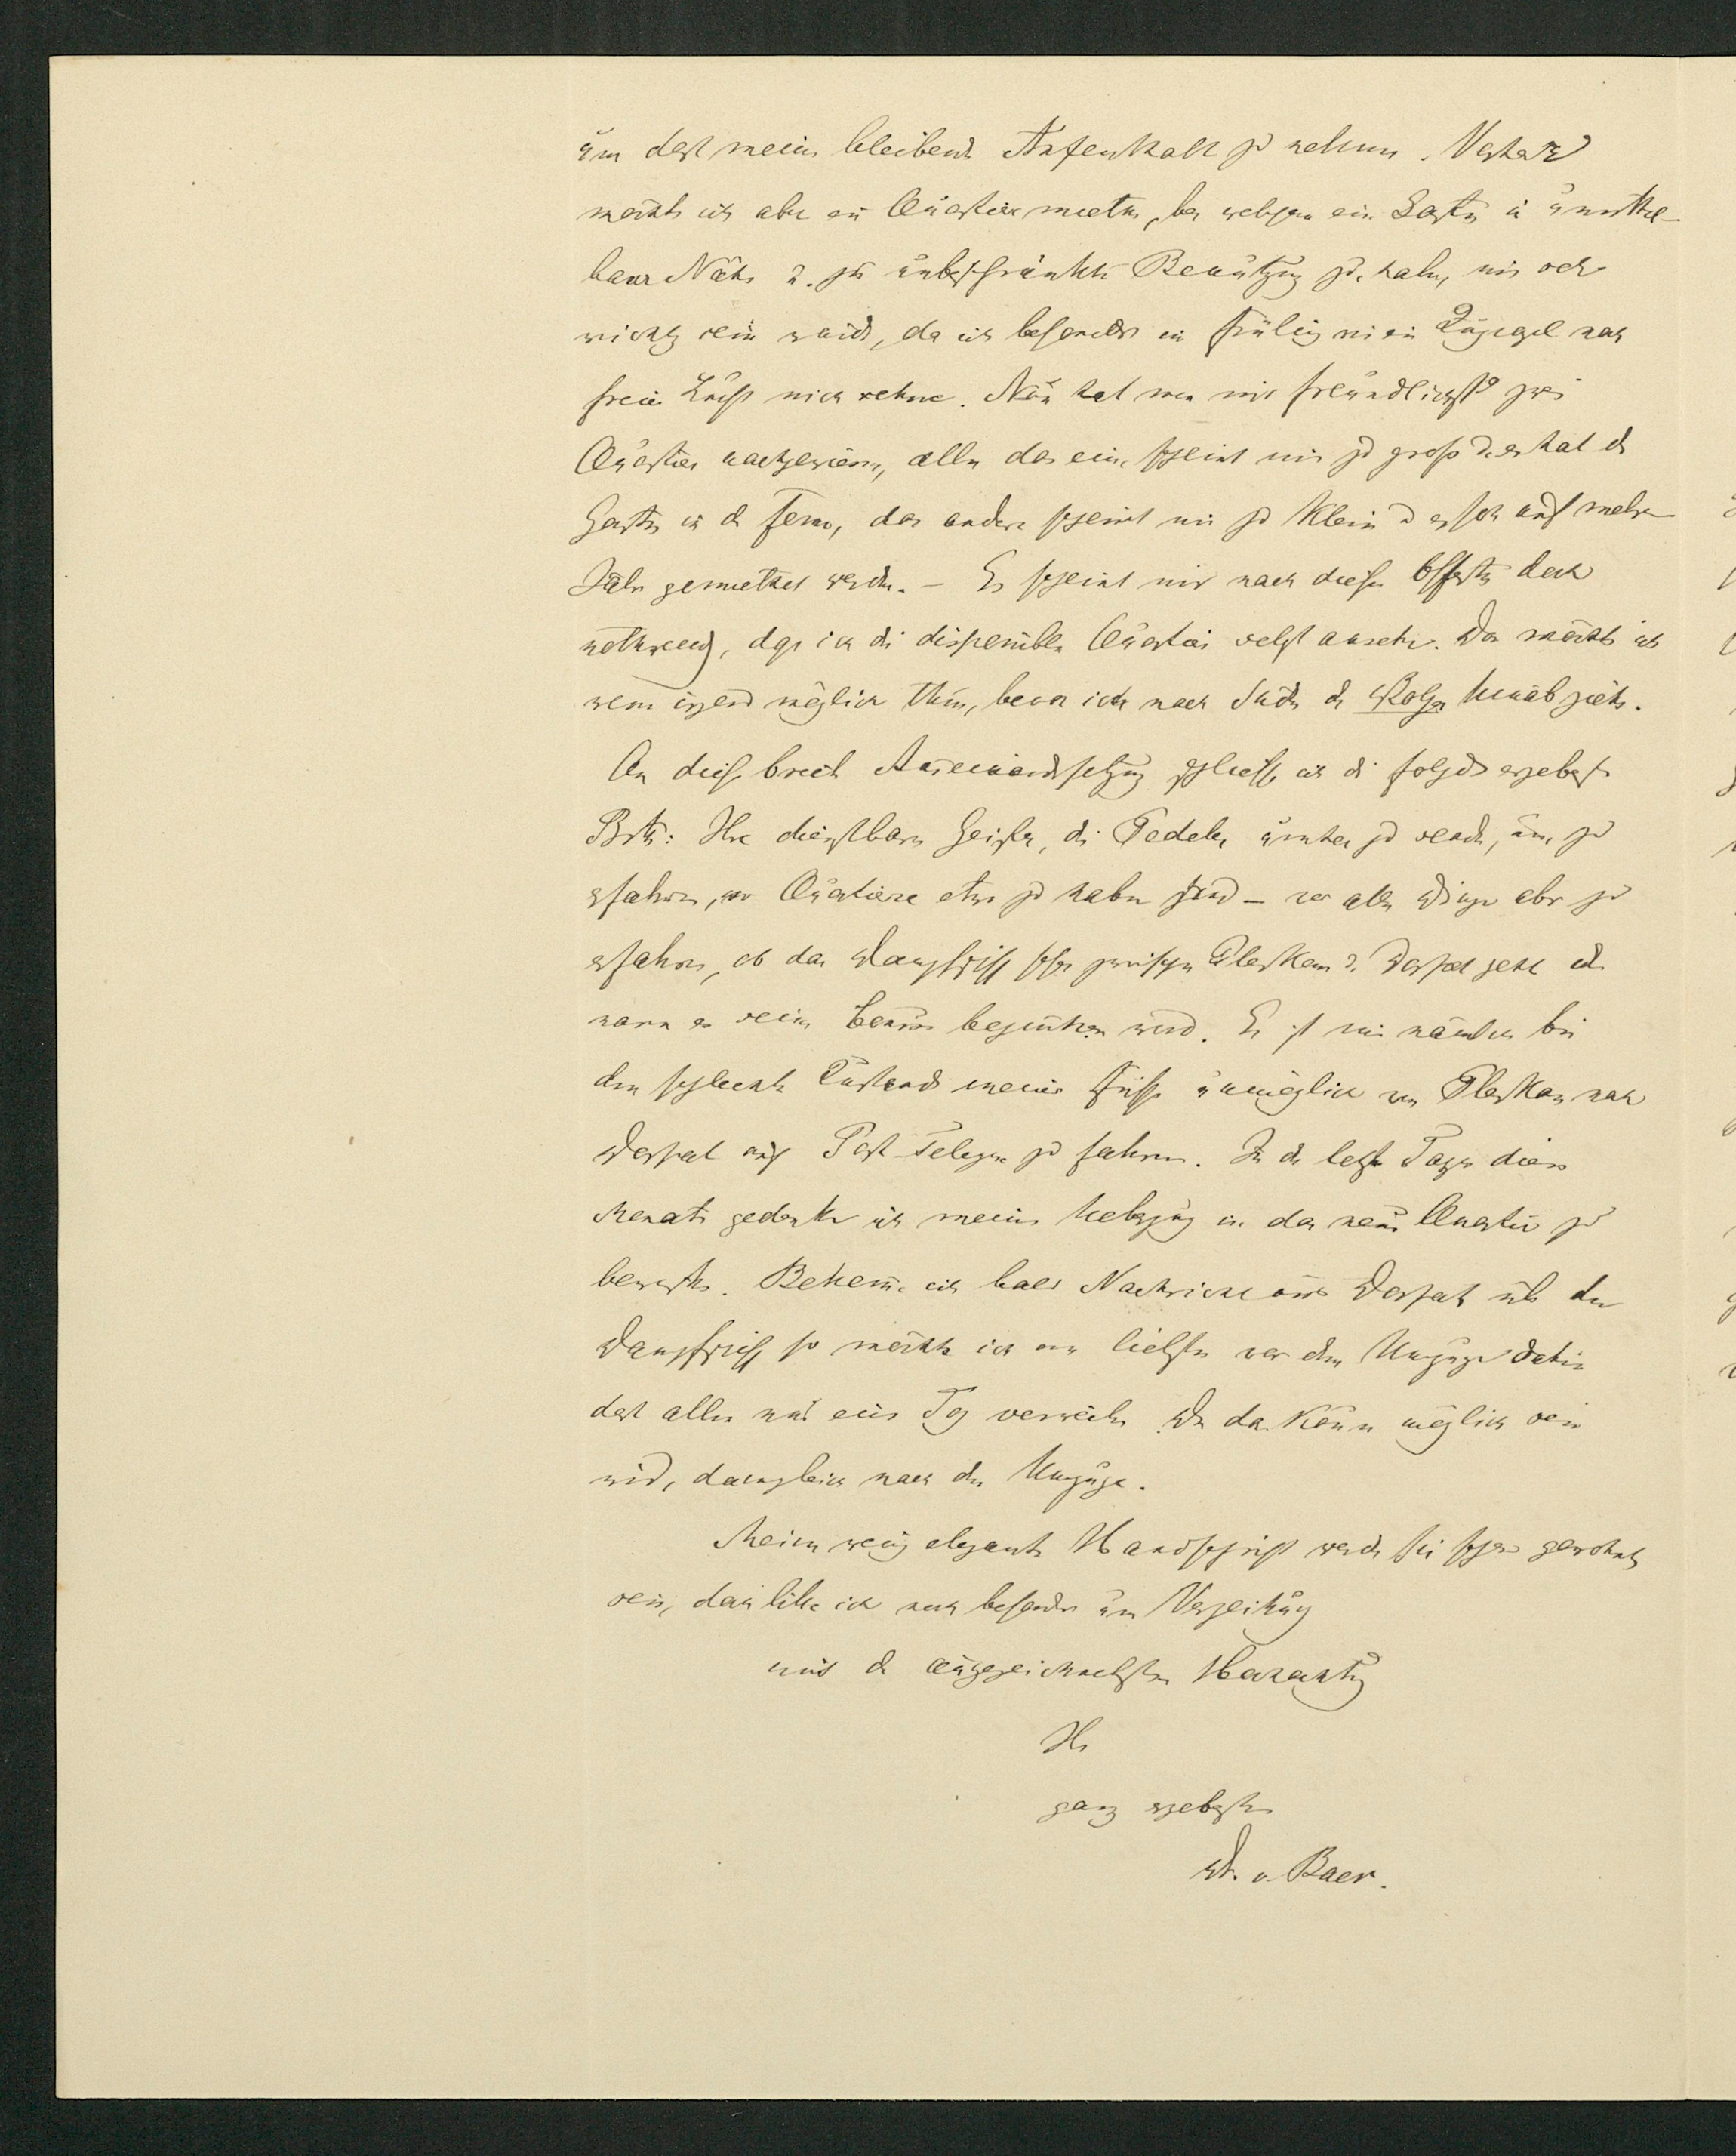 um dort meinen bleibenden Aufenthalt zu nehmen. Vorher
möchte ich aber ein Quartier miethen, bei welchem ein Garten in unmittel-
barer Nähe u. zu unbeschränkter Benutzung zu haben, mir sehr
wichtig sein würde, da ich besonders im Frühling mich in
freier Luft mich sehne. Nun hat man mir freundlichst zwei
Quartiere nachgewiesen, allein das eine scheint mir zu groß u. es hat den
Garten in der Ferne, das andere scheint mir zu klein u. es soll auf mehre
Jahre gemiethet werden. – Es scheint mir nach diesen Offerten doch
nothwendig, dass ich die disponiblen Quartiere selbst ansehe. Das möchte ich
wenn irgend möglich thun, bevor ich nach Süden die Wolga hinab ziehe.
An diese breite Auseinandersetzung schliesse ich die folgende ergebenste
Bitte: Ihre dienstbaren Geister, die Pedelle umher zu senden, um zu
erfahren, wo Quartiere etwa zu haben sind – vor allen Dingen aber zu
erfahren, ob das Dampfschiff schon zwischen Pleskau u. Dorpat geht oder
wann es seinen Cours beginnen wird. Es ist mir nämlich bei
dem schlechten Zustande meiner Füsse unmöglich von Pleskau nach
Dorpat auf Post-Telegen zu fahren. In den letzten Tagen dieses
Monats gedenke ich meinen Ueberzug in das neue Quartier zu
bewerkst. Bekomme ich bald Nachricht aus Dorpat über das
Dampfschiff so möchte ich am liebsten vor dem Umzuge dahin
dort allein nur einen Tag verweilen. Wenn das kaum möglich sein
wird, dann gleich nach dem Umzuge.
Meine wenig elegante Handschrift werden Sie schon gewohnt
sein, doch bitte ich noch besonders um Verzeihung
mit der ausgezeichnetsten Hochachtung
Ihr
ganz ergebenster
Dr. v. Baer.